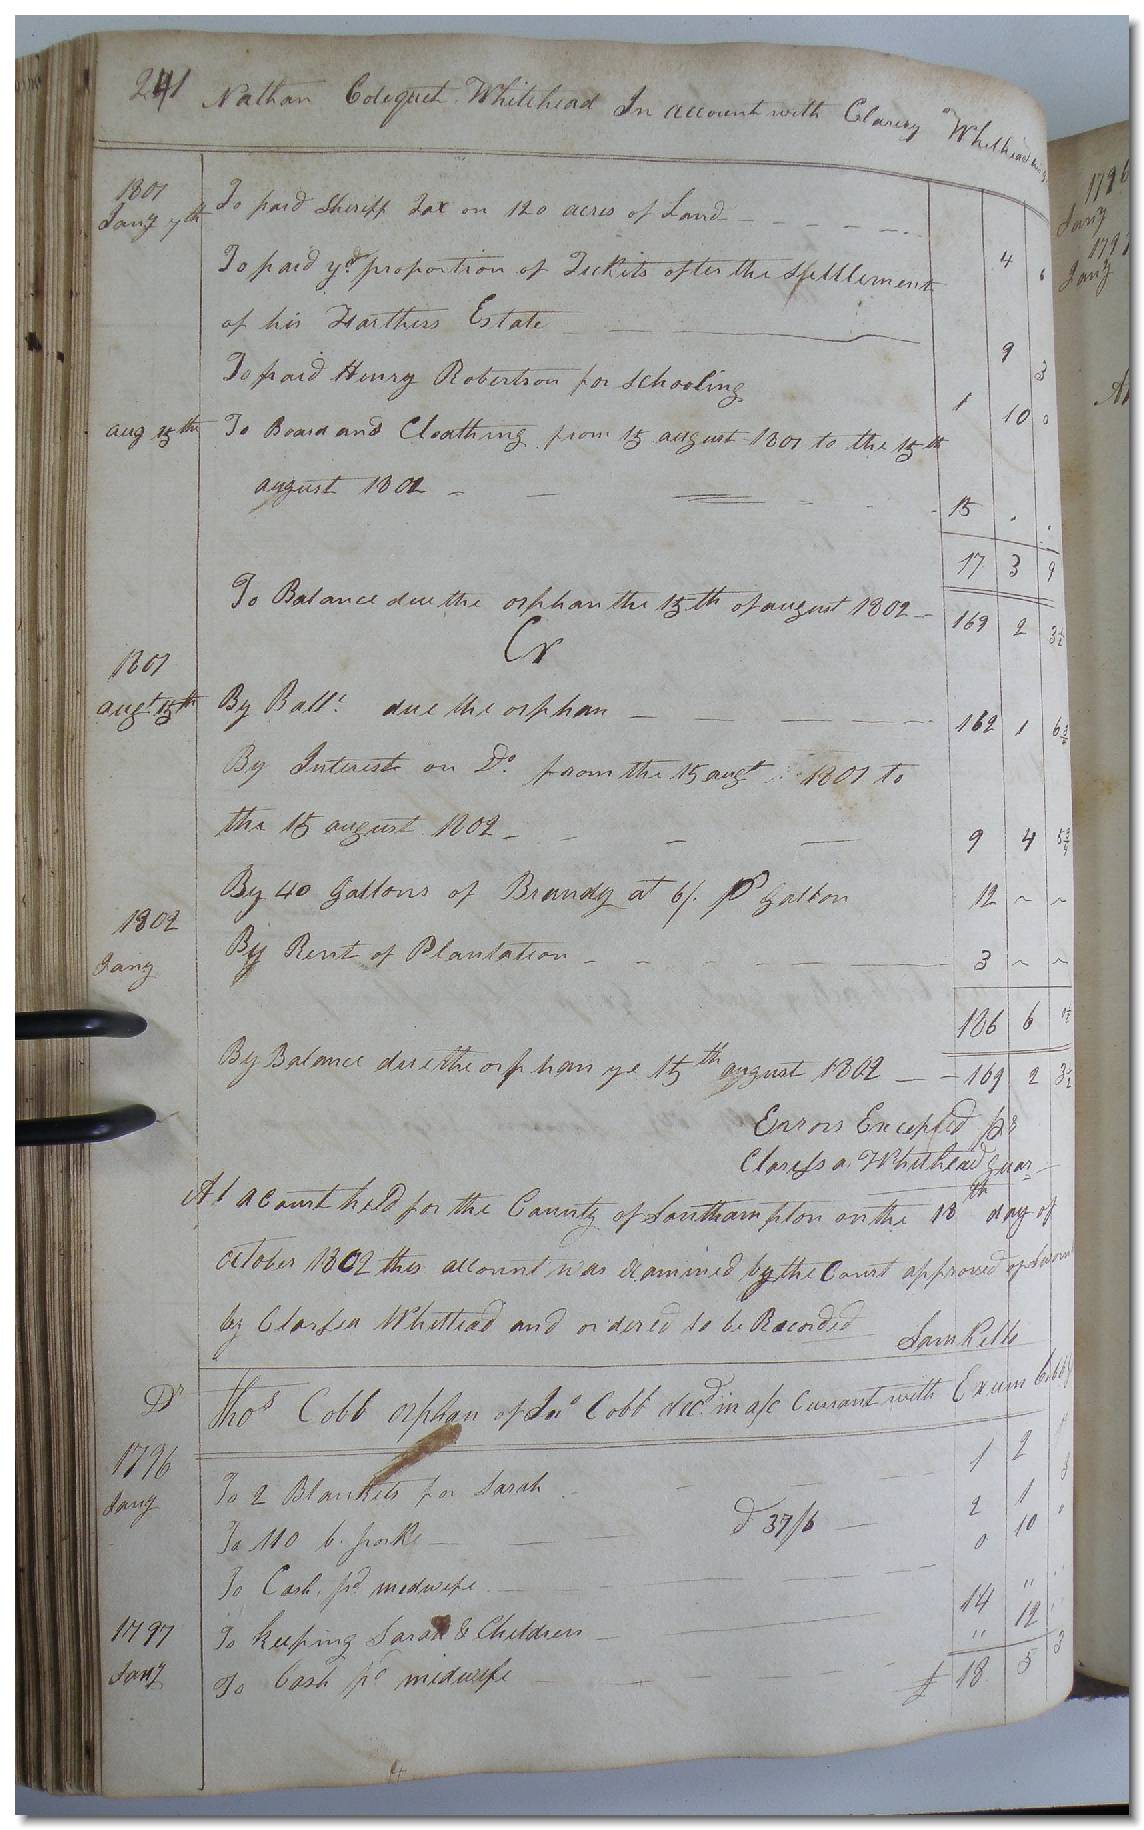 241 Nathan Colequit Whitehead In account with Clarisy Whithead
1801
Jany 7th To paid Sheriff Tax on 120 acres of Land 4 6
To paid yr proportion of Tickits after the Settlement
of his Farthers Estate 9 3
To paid Henry Robertson for Schooling 1 10 0
aug 15th To Board and Cloathing from 15 august 1801 to the 15th
august 1802 15 . .
17 3 9
To Balance due the orphan the 15th of august 1802 169 2 3½
Cr
1801
augt 15th By Balle due the orphan 162 1 6¾
By Interest on Do from the 15 augt 1801 to
the 15 august 1802 9 4 5¾
By 40 Gallons of Brandy at 6/. pr Gallon 12 ~ ~
1802
Jany By Rent of Plantation 3 ~ ~
186 6 ½
By Balance due the orphan ye 15th august 1802 169 2 3½
Errors Excepted pr
Clarissa Whithead guar
At a Court held for the County of Southampton on the 18th day of
october 1802 this account was examined by the Court approved of Sworn
by Clarissa Whithead and ordered to be Recorded
Sam Kello
Dr Thos Cobb orphan of Jno Cobb decd in a/c Currant with Exum Cobb
1796
Jany To 2 Blankets for Sarah 1 2
To 110 lb. porke @ 37/6 2 1 3
To Cash pd midwife 0 10 0
1797 To keeping Sarah & Children 14 " "
Jany To Cash pd midwife " 12 "
£ 18 5 3
1796
Jany
1797
Jany